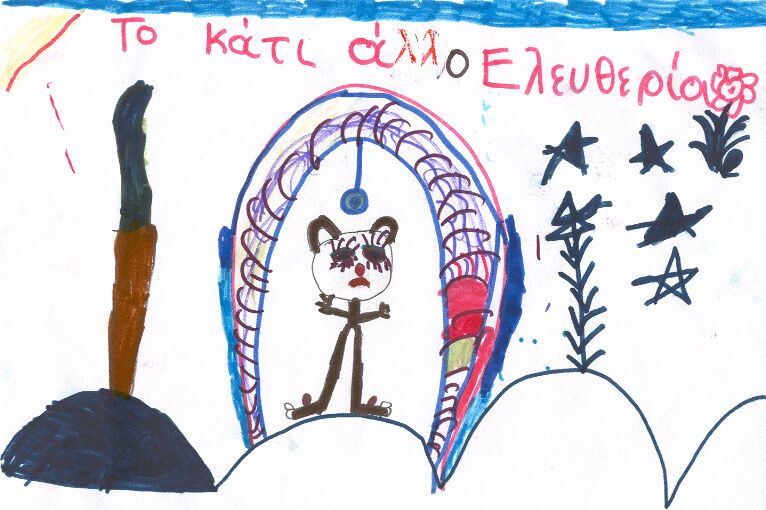 Το κάτι άλλο Ελευθερία